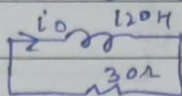 i₀ 120H
30Ω